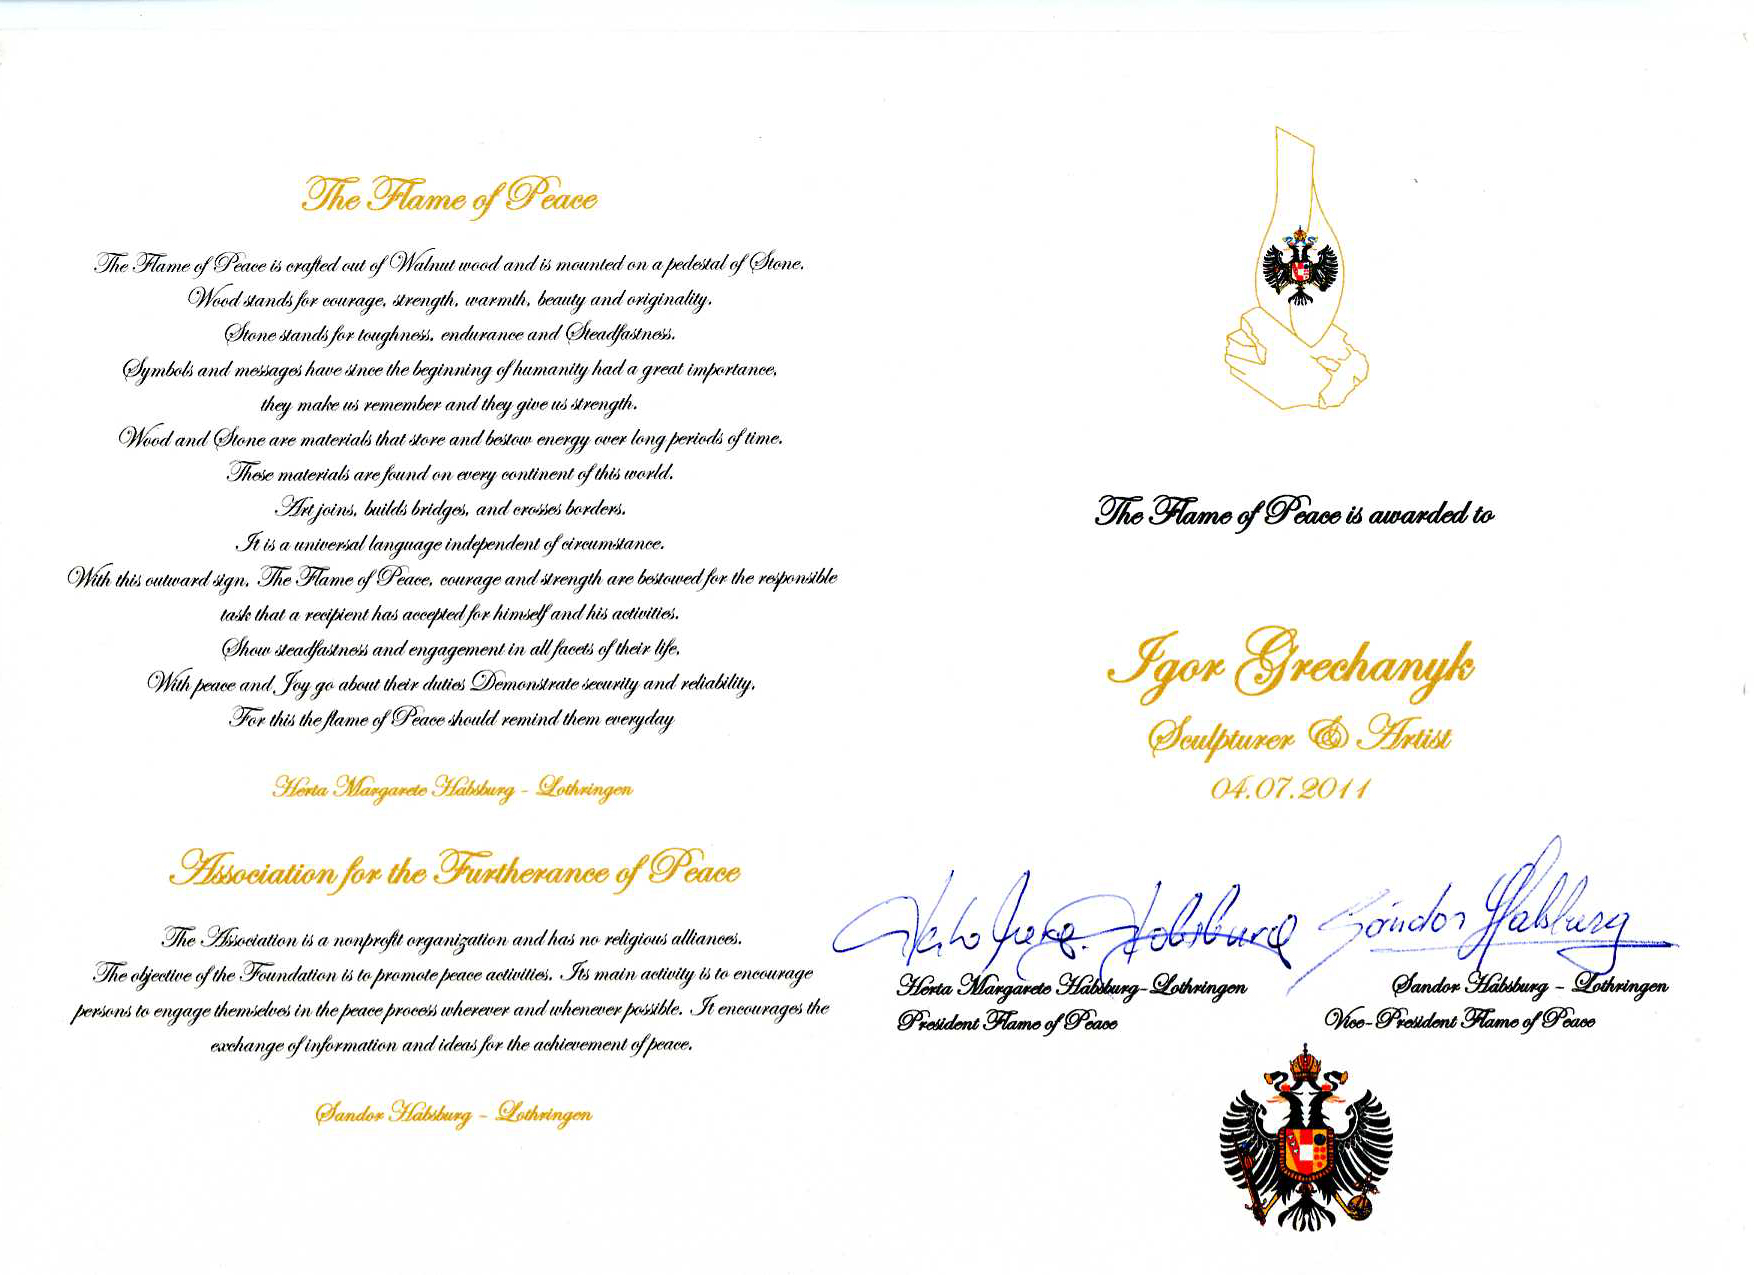 The Flame of Peace
The Flame of Peace is crafted out of Walnut wood and is mounted on a pedestal of Stone.
Wood stands for courage, strength, warmth, beauty and originality.
Stone stands for toughness, endurance and Steadfastness.
Symbols and messages have since the beginning of humanity had a great importance,
they make us remember and they give us strength.
Wood and Stone are materials that store and bestow energy over long periods of time.
These materials are found on every continent of this world.
Art joins, builds bridges, and crosses borders.
It is a universal language independent of circumstance.
With this outward sign, The Flame of Peace, courage and strength are bestowed for the responsible
task that a recipient has accepted for himself and his activities.
Show steadfastness and engagement in all facets of their life,
With peace and Joy go about their duties Demonstrate security and reliability,
For this the flame of Peace should remind them everyday
Herta Margarete Habsburg - Lothringen
Association for the Furtherance of Peace
The Association is a nonprofit organization and has no religious alliances.
The objective of the Foundation is to promote peace activities. Its main activity is to encourage
persons to engage themselves in the peace process wherever and whenever possible. It encourages the
exchange of information and ideas for the achievement of peace.
Sandor Habsburg - Lothringen
The Flame of Peace is awarded to
Igor Grechanyk
Sculpturer & Artist
04.07.2011
Sándor Habsburg
Herta Margarete Habsburg-Lothringen
President Flame of Peace
Sandor Habsburg - Lothringen
Vice-President Flame of Peace